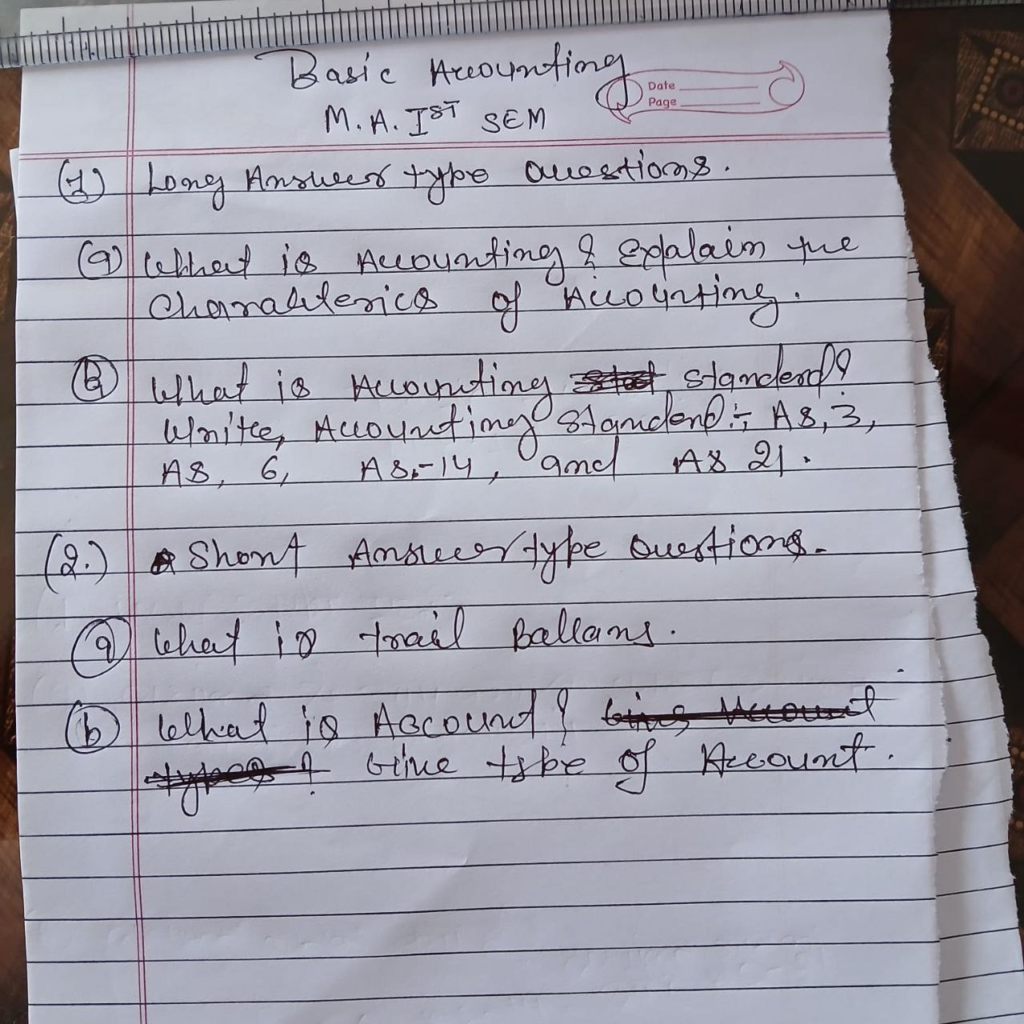 Basic Accounting
Date
Page
M.A. IST SEM
(1) Long Answer type Questions.
(a) What is Accounting? Explalain the
Charakterics of Accounting.
(b) What is Accounting standerd?
Write, Accounting Standerd :- AS, 3,
AS, 6, AS,-14, and AS 21.
(2.) Short Answer type Questions.
(a) What is trail Ballans.
(b) What is Account? Give Account
types? Give type of Account.